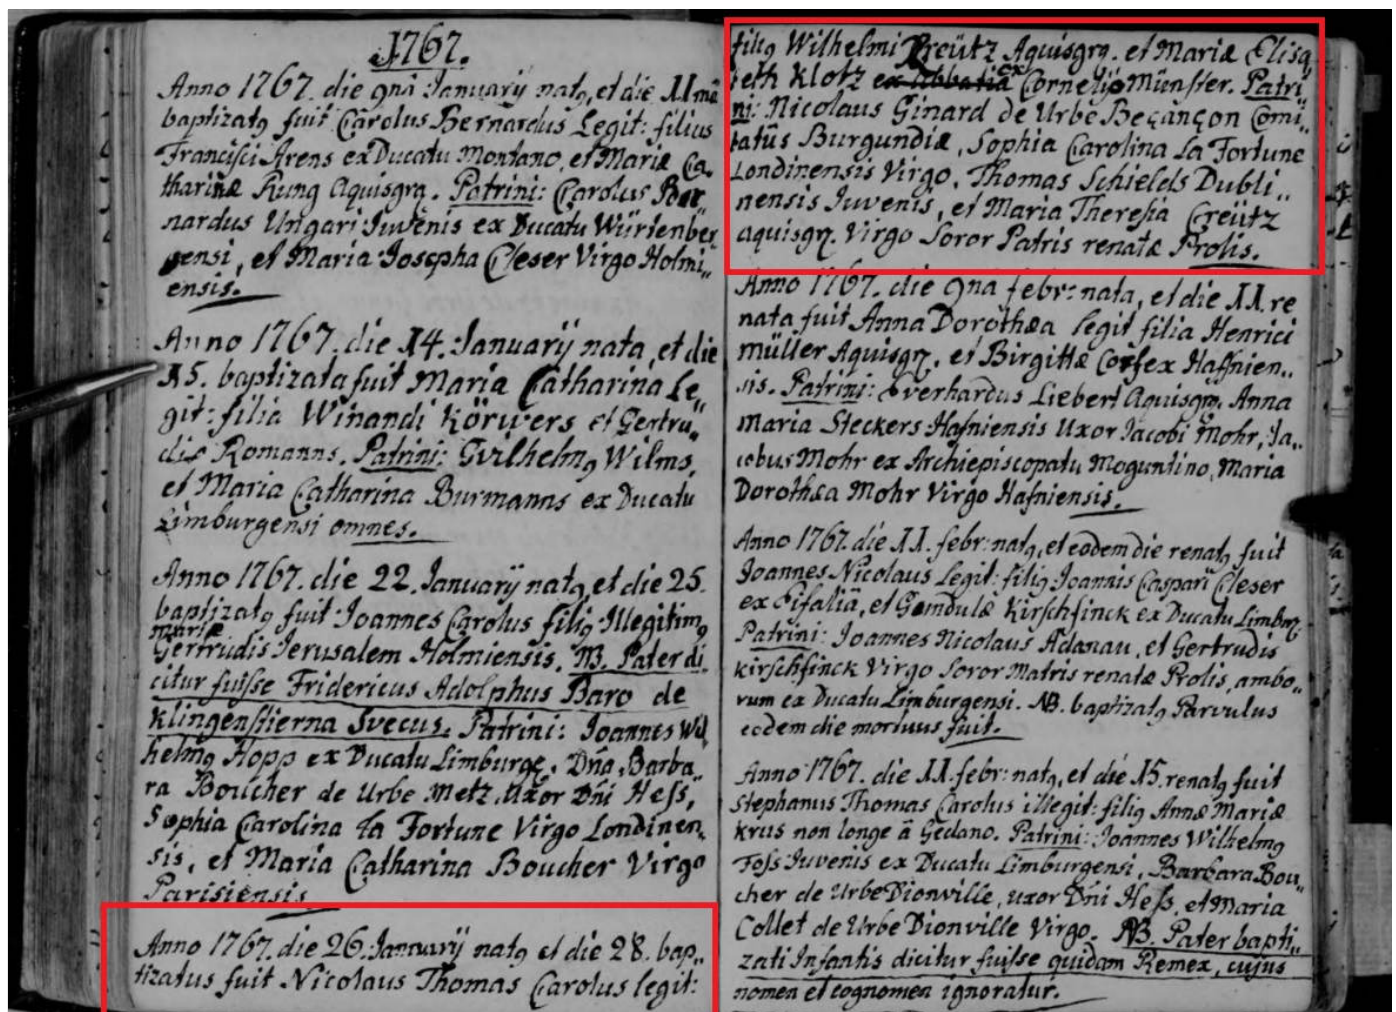 1767.
Anno 1767. die 9nâ Januarij natq, et die 11mâ
baptizatq fuit Carolus Bernardus Legit: filius
Francisci Arens ex Ducatu Montano, et Mariæ Ca„
tharinæ Rung Aquisgrq. Patrini: Carolus Ber„
nardus Ungari Juvenis ex Ducatu Würtenber„
gensi, et Maria Josepha Cleser Virgo Holmi„
ensis.
Anno 1767. die 14. Januarij nata, et die
15. baptizata fuit Maria Catharina Le„
git: filia Winandi Körvers et Gertru„
dis Romanns. Patrini: Gvilhelmq Wilms,
et Maria Catharina Burmanns ex Ducatu
Limburgensi omnes.
Anno 1767. die 22. Januarij natq et die 25.
baptizatq fuit Joannes Carolus filiq Illegitimq
Mariæ
Gertrudis Jerusalem Holmiensis. NB. Pater di„
citur fuisse Fridericus Adolphus Baro de
Klingenstierna Svecus. Patrini: Joannes Wil„
helmq Hopp ex Ducatu Limburg. Dña Barba„
ra Boucher de Urbe Metz, Uxor Dñi Hess,
Sophia Carolina la Fortune Virgo Londinen„
sis, et Maria Catharina Boucher Virgo
Parisiensis
Anno 1767. die 26. Januarij natq et die 28. bap„
tizatus fuit Nicolaus Thomas Carolus legit:
filiq Wilhelmi Creütz Aquisgrq. et Mariæ Elisa
beth Klotz ex Abbatia ex Cornelij Münster. Patri„
ni: Nicolaus Ginard de Urbe Beçançon Comi„
tatûs Burgundiæ, Sophia Carolina La Fortune
Londinensis Virgo, Thomas Schields Dubli„
nensis Juvenis, et Maria Theresia Creütz
aquisgrq. Virgo Soror Patris renatæ Prolis.
Anno 1767. die 9na febr: nata, et die 11. re
nata fuit Anna Dorothæa legit filia Henrici
Müller Aquisgrq. et Birgittæ Haffnien„
sis. Patrini: Everhardus Liebert Aquisgrq. Anna
Maria Steckers Hafniensis Uxor Jacobi Mohr, Ja„
cobus Mohr ex Archiepiscopatu Moguntino, Maria
Dorothæa Mohr Virgo Hafniensis.
Anno 1767. die 11. febr: natq, et eodem die renatq fuit
Joannes Nicolaus Legit: filiq Joannis Caspari Cleser
ex Eifaliâ, et Gomdulæ Kirschfinck ex Ducatu Limburg.
Patrini: Joannes Nicolaus Adanau, et Gertrudis
Kirschfinck Virgo Soror Matris renatæ Prolis, ambo„
rum ex Ducatu Limburgensi. NB. baptizatq Parvulus
eodem die mortuus fuit.
Anno 1767. die 11. febr: natq, et die 15. renatq fuit
Stephanus Thomas Carolus illegit: filiq Annæ Mariæ
Krus non longe â Gedano. Patrini: Joannes Wilhelmq
Foss Juvenis ex Ducatu Limburgensi, Barbara Bou„
cher de Urbe Dionville, uxor Dñi Hess, et Maria
Collet de Urbe Dionville Virgo. NB. Pater bapti„
zati Infantis dicitur fuisse quidam Remex, cujus
nomen et cognomen ignoratur.